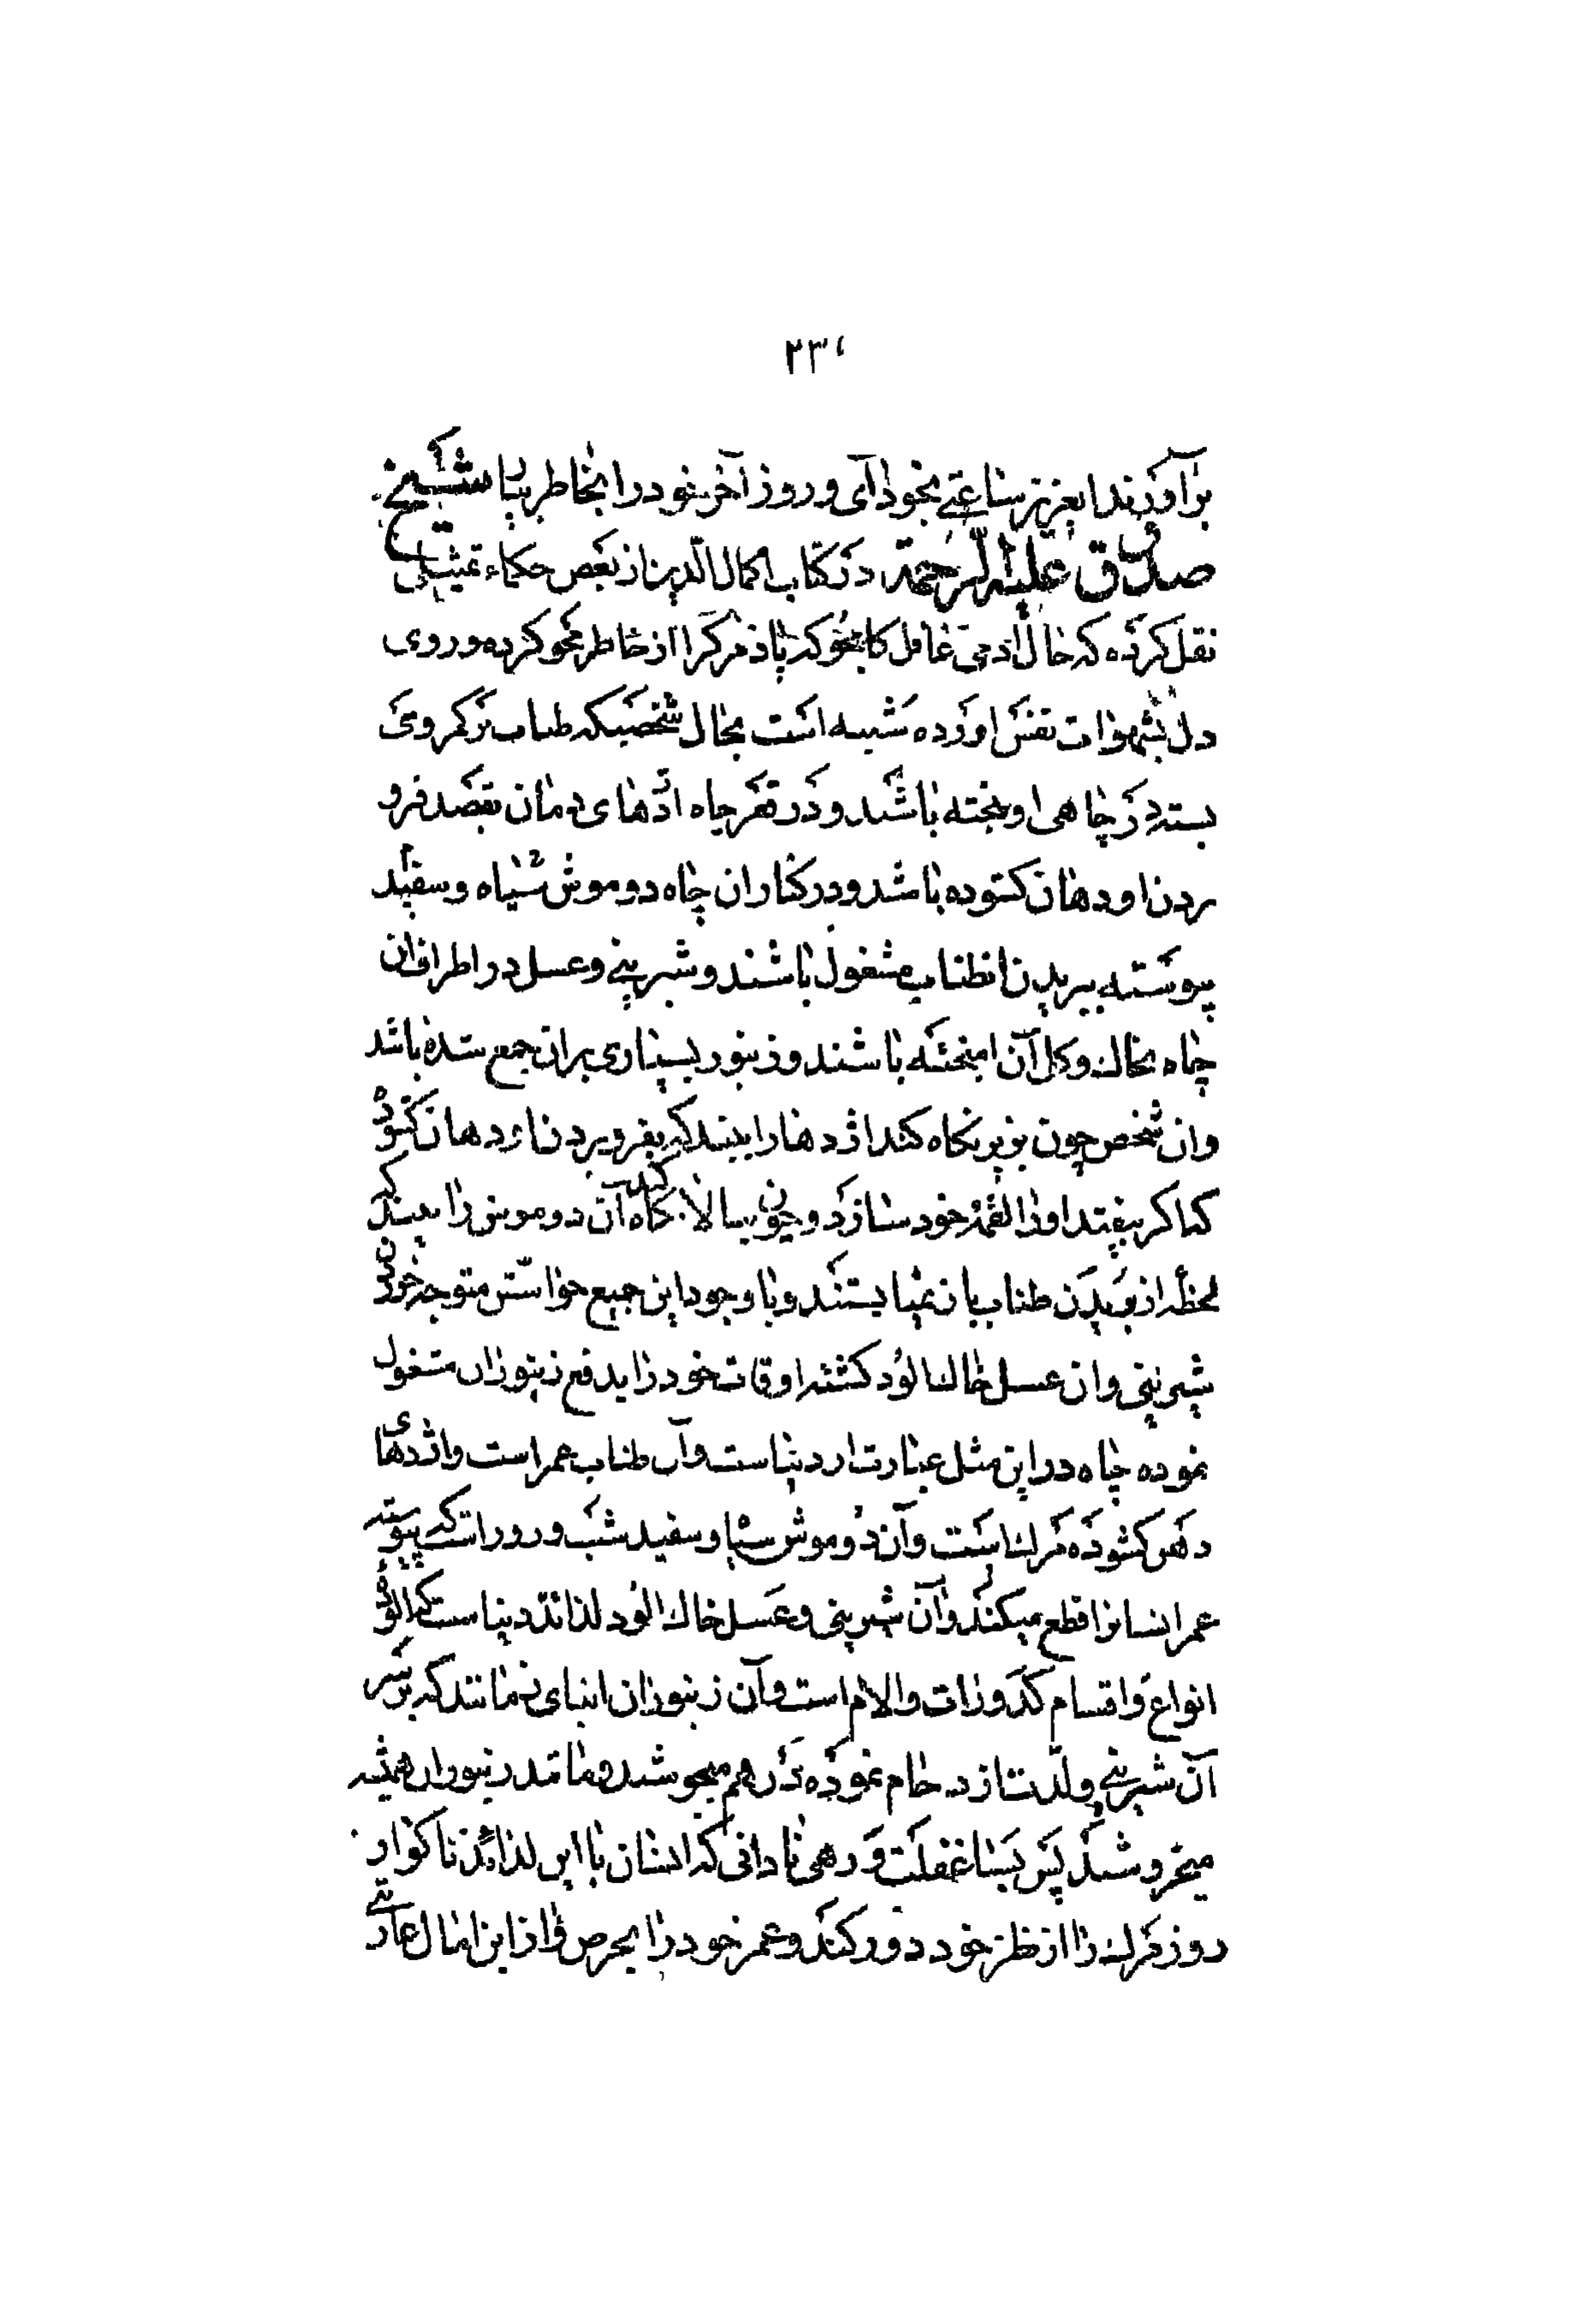 ۲۳۶
برآورند ای عزیز ساعتی بخود آی و روز آخر خود را بخاطر بیا شیخ
صدوق علیه الرحمة در کتاب اکمال الدین از بعض حکماء تمثیلی
نقل کرده که حال ادمی غافل کامجو که یاد مرگ را از خاطر محو کرده و روی
دل بشهوات نفس اورده شبیه است بحال شخصیکه طناب بر کمر وی
بسته در چاهی اویخته باشد و در قعر چاه اژدهای دمان بقصد فرو
بردن او دهان کشوده باشد و در کنار ان چاه دو موش سیاه و سفید
پیوسته ببریدن انطناب مشغول باشند و شیرینی و عسل در اطراف ان
چاه بخاک و گل آن امیخته باشند و زنبور بسیاری بران جمع شده باشد
وان شخص چون بزیر نگاه کند اژدهار ابیند که بفرو بردن او دهان کشوده
که اگر بیفتد او را لقمهٔ خود سازد و چون ببالا نگاه کند آن دو موش را بیند که
لحظهٔ از بریدن طناب باز نمیایستند و با وجود این جمیع حواسش متوجه خوردن
شیرینی وان عسل خاک الود گشته اوقات خود را بدفع زنبوران مشغول
نموده چاه در این مثل عبارت از دنیاست وآن طناب عمر است واژدهای
دهن کشوده مرک است وآن دو موش سیاه و سفید شب و روز است که پیوسته
عمر انسانرا قطع میکند وآن شیرینی و عسل خاک الود لذائذ دنیاست که الوده
انواع و اقسام کدورات والام است وآن زنبوران ابنای زمانند که بر سر
آن شیرینی ولذت ازدحام نموده در هم میجوشند و مانند زنبوران همیشه
میخروشند پس بسا غفلت و زهی نادانی که انسان با این لذائذ ناکوار
روز مرک را از نظر خود دور کند و عمر خود را بحرص واز این امال عاریتی